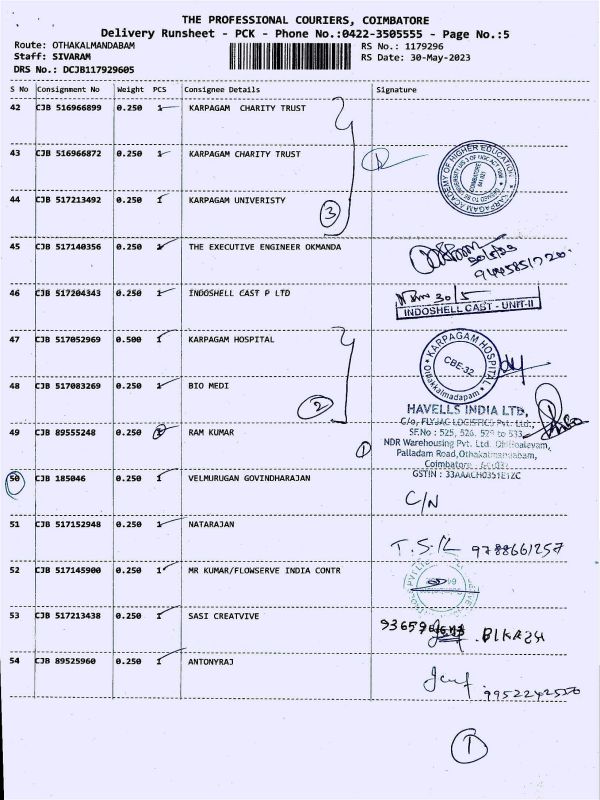 THE PROFESSIONAL COURIERS, COIMBATORE
Delivery Runsheet - PCK - Phone No.:0422-3505555 - Page No.:5
Route: OTHAKALMANDABAM RS No.: 1179296
Staff: SIVARAM RS Date: 30-May-2023
DRS No.: DCJB117929605
S No Consignment No Weight PCS Consignee Details Signature
42 CJB 516966899 0.250 1 KARPAGAM CHARITY TRUST
43 CJB 516966872 0.250 1 KARPAGAM CHARITY TRUST
KARPAGAM ACADEMY OF HIGHER EDUCATION
44 CJB 517213492 0.250 1 KARPAGAM UNIVERISTY
3
45 CJB 517140356 0.250 1 THE EXECUTIVE ENGINEER OKMANDA
46 CJB 517204343 0.250 1 INDOSHELL CAST P LTD
30/5
INDOSHELL CAST - UNIT-II
47 CJB 517052969 0.500 1 KARPAGAM HOSPITAL
KARPAGAM HOSPITAL
CBE-32
Othakkalmadapam
48 CJB 517083269 0.250 1 BIO MEDI
2
HAVELLS INDIA LTD,
C/o, FLYJAC LOGISTICS Pvt. Ltd.,
SF.No : 525, 526, 529 to 533,
49 CJB 89555248 0.250 RAM KUMAR
1
NDR Warehousing Pvt. Ltd.
Palladam Road, Othakalmandabam,
Coimbatore
50 CJB 185046 0.250 1 VELMURUGAN GOVINDHARAJAN
GSTIN : 33AAACH0351E1ZC
C/N
51 CJB 517152948 0.250 1 NATARAJAN
9788661257
52 CJB 517145900 0.250 1 MR KUMAR/FLOWSERVE INDIA CONTR
53 CJB 517213438 0.250 1 SASI CREATVIVE
54 CJB 89525960 0.250 1 ANTONYRAJ
1